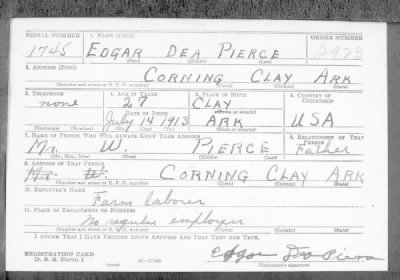 SERIAL NUMBER 1. NAME (Print) ORDER NUMBER
1745 EDGAR DEA PIERCE 2923
(First) (Middle) (Last)
2. ADDRESS (Print)
CORNING CLAY ARK
(Number and street or R. F. D. number) (Town) (County) (State)
3. TELEPHONE 4. AGE IN YEARS 5. PLACE OF BIRTH 6. COUNTRY OF CITIZENSHIP
none 27 CLAY
DATE OF BIRTH (Town or county)
July 14 1913 ARK USA
(Exchange) (Number) (Mo.) (Day) (Yr.) (State or country)
7. NAME OF PERSON WHO WILL ALWAYS KNOW YOUR ADDRESS 8. RELATIONSHIP OF THAT PERSON
Mr. W. PIERCE Father
(Mr., Mrs., Miss) (First) (Middle) (Last)
9. ADDRESS OF THAT PERSON
Mr. W. CORNING CLAY ARK
(Number and street or R. F. D. number) (Town) (County) (State)
10. EMPLOYER'S NAME
Farm laborer
11. PLACE OF EMPLOYMENT OR BUSINESS
No regular employer
(Number and street or R. F. D. number) (Town) (County) (State)
I AFFIRM THAT I HAVE VERIFIED ABOVE ANSWERS AND THAT THEY ARE TRUE.
REGISTRATION CARD Edgar Dea Pierce
D. S. S. FORM 1 16—17105 (Registrant's signature)